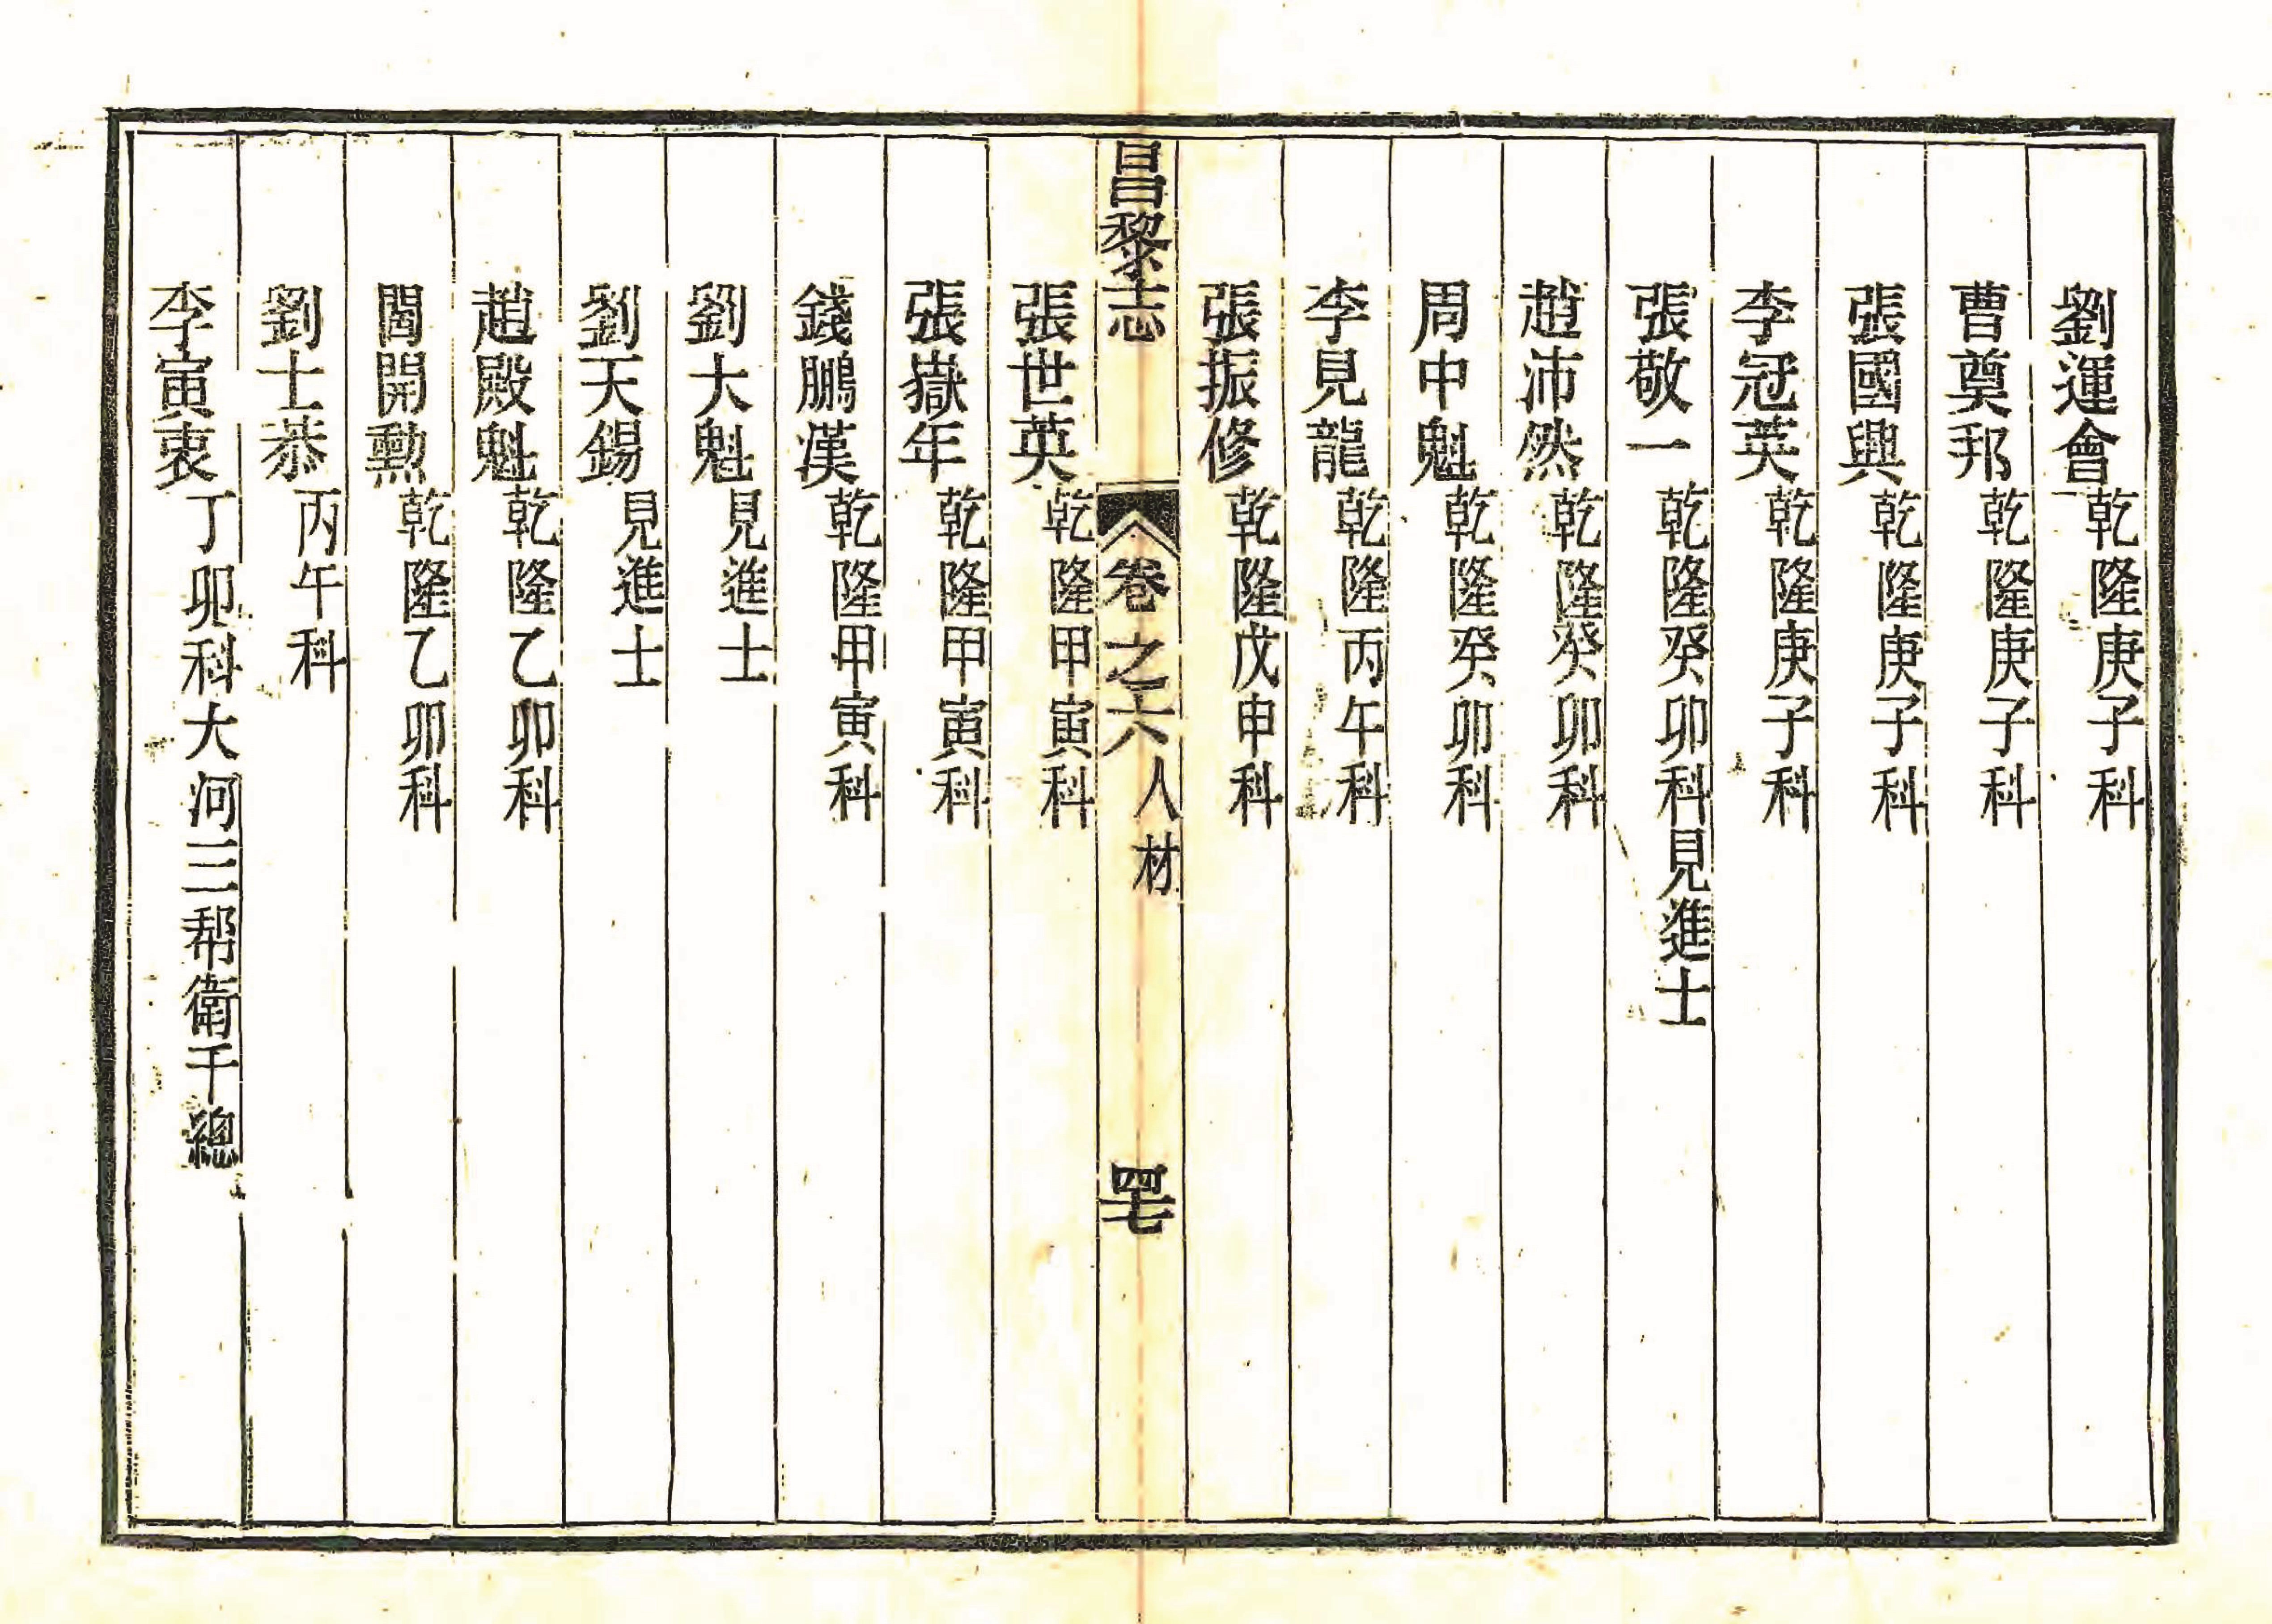 劉運會乾隆庚子科
曹奠邦乾隆庚子科
張國興乾隆庚子科
李冠英乾隆庚子科
張敬一乾隆癸卯科見進士
趙沛然乾隆癸卯科
周中魁乾隆癸卯科
李見龍乾隆丙午科
張振修乾隆戊申科
昌黎志 卷之六 人材 四七
張世英乾隆甲寅科
張嶽年乾隆甲寅科
錢鵬漢乾隆甲寅科
劉大魁見進士
劉天錫見進士
趙殿魁乾隆乙卯科
閻開勳乾隆乙卯科
劉士恭丙午科
李寅衷丁卯科大河三幇衛千總